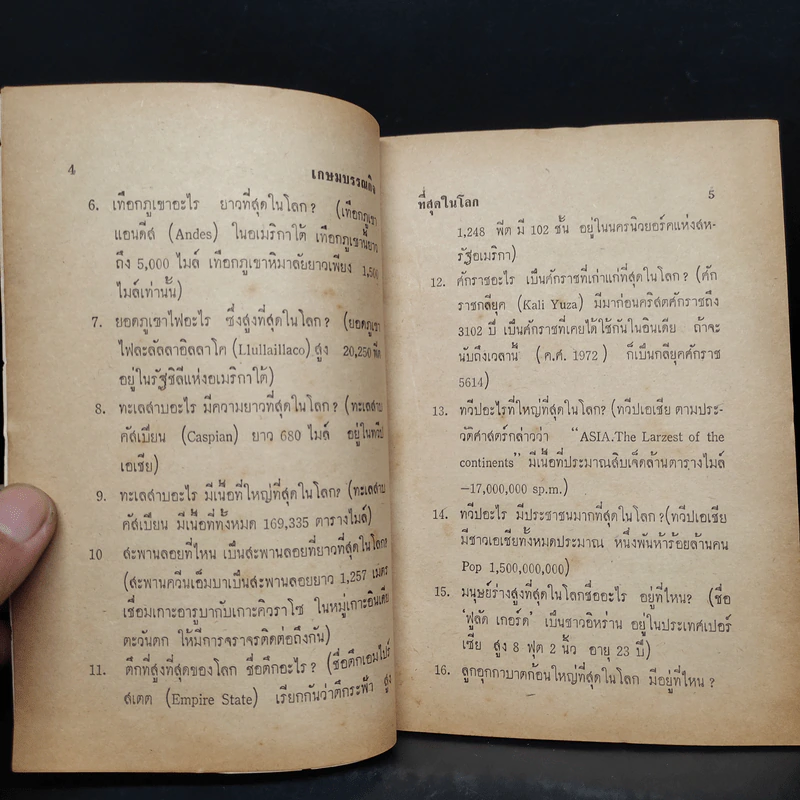 4
เกษมบรรณกิจ
6. เทือกภูเขาอะไร ยาวที่สุดในโลก? (เทือกภูเขา
แอนดีส (Andes) ในอเมริกาใต้ เทือกภูเขานี้ยาว
ถึง 5,000 ไมล์ เทือกภูเขาหิมาลัยยาวเพียง 1,500
ไมล์เท่านั้น)
7. ยอดภูเขาไฟอะไร ซึ่งสูงที่สุดในโลก? (ยอดภูเขา
ไฟละลัลลาอิลลาโค (Llullaillaco) สูง 20,250 ฟีต
อยู่ในรัฐชิลีแห่งอเมริกาใต้)
8. ทะเลสาบอะไร มีความยาวที่สุดในโลก? (ทะเลสาบ
คัสเบียน (Caspian) ยาว 680 ไมล์ อยู่ในทวีป
เอเซีย)
9. ทะเลสาบอะไร มีเนื้อที่ใหญ่ที่สุดในโลก? (ทะเลสาบ
คัสเบียน มีเนื้อที่ทั้งหมด 169,335 ตารางไมล์)
10 สะพานลอยที่ไหน เป็นสะพานลอยที่ยาวที่สุดในโลก?
(สะพานควีนเอ็มมาเป็นสะพานลอยยาว 1,257 เมตร
เชื่อมเกาะอารูบากับเกาะคิวราโซ ในหมู่เกาะอินเดีย
ตะวันตก ให้มีการจราจรติดต่อถึงกัน)
11. ตึกที่สูงที่สุดของโลก ชื่อตึกอะไร? (ชื่อตึกเอมไปร์
สเตต (Empire State) เรียกกันว่าตึกระฟ้า สูง
ที่สุดในโลก
5
1,248 ฟีต มี 102 ชั้น อยู่ในนครนิวยอร์คแห่งสห-
รัฐอเมริกา)
12. ศักราชอะไร เป็นศักราชที่เก่าแก่ที่สุดในโลก? (ศัก
ราชกลียุค (Kali Yuza) มีมาก่อนคริสตศักราชถึง
3102 ปี เป็นศักราชที่เคยได้ใช้กันในอินเดีย ถ้าจะ
นับถึงเวลานี้ (ค.ศ. 1972) ก็เป็นกลียุคศักราช
5614)
13. ทวีปอะไรที่ใหญ่ที่สุดในโลก? (ทวีปเอเซีย ตามประ-
วัติศาสตร์กล่าวว่า "ASIA.The Larzest of the
continents" มีเนื้อที่ประมาณสิบเจ็ดล้านตารางไมล์
–17,000,000 sp.m.)
14. ทวีปอะไร มีประชาชนมากที่สุดในโลก?(ทวีปเอเซีย
มีชาวเอเซียทั้งหมดประมาณ หนึ่งพันห้าร้อยล้านคน
Pop 1,500,000,000)
15. มนุษย์ร่างสูงที่สุดในโลกชื่ออะไร อยู่ที่ไหน? (ชื่อ
'ฟูลัด เกอร์ด' เป็นชาวอิหร่าน อยู่ในประเทศเปอร์
เซีย สูง 8 ฟุต 2 นิ้ว อายุ 23 ปี)
16. ลูกอุกกาบาตก้อนใหญ่ที่สุดในโลก มีอยู่ที่ไหน?